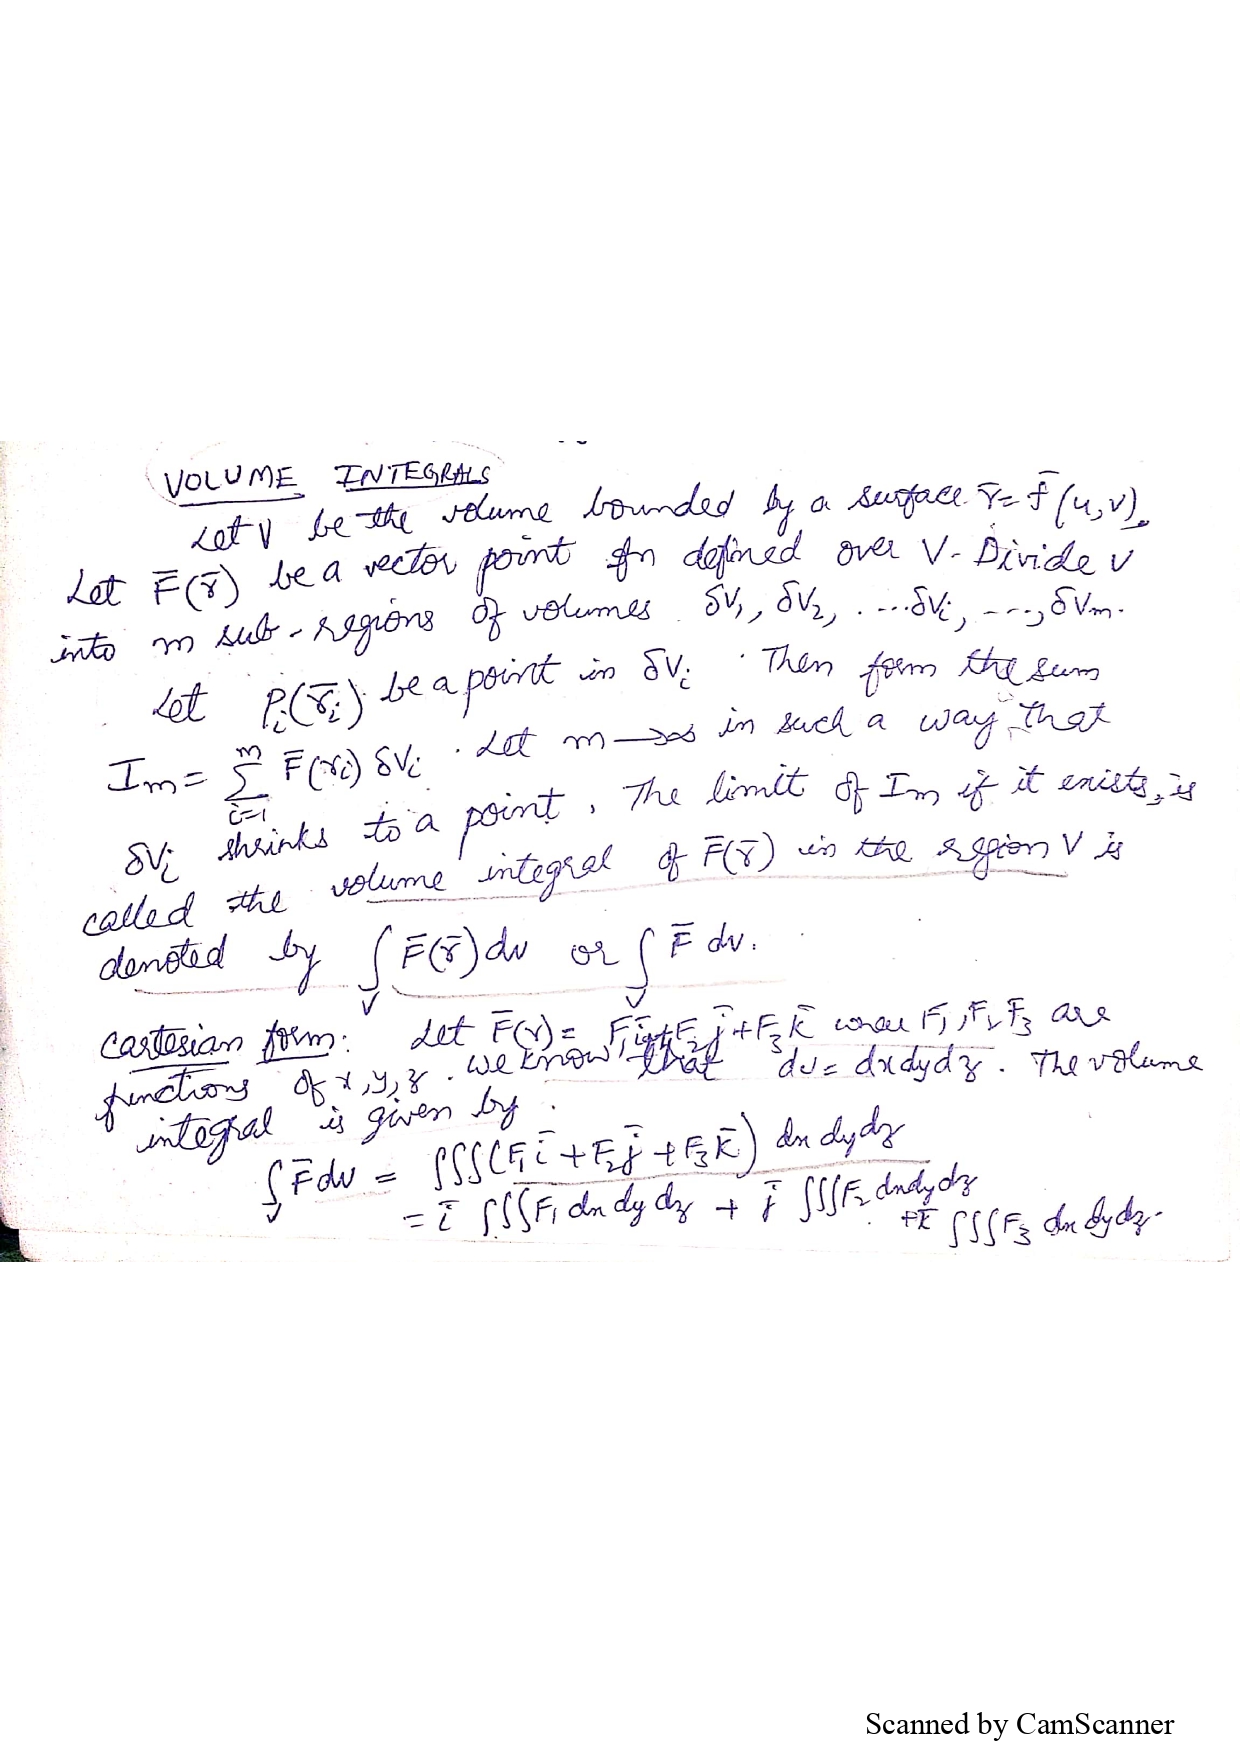 VOLUME INTEGRALS
Let V be the volume bounded by a surface r̄ = f̄(u,v).
Let F̄(r̄) be a vector point fn defined over V. Divide V
into m sub-regions of volumes δV₁, δV₂, ....δVᵢ, ---, δVm.
Let Pᵢ(r̄ᵢ) be a point in δVᵢ. Then form the sum
Im = Σᵢ₌₁ᵐ F̄(rᵢ) δVᵢ. Let m→∞ in such a way that
δVᵢ shrinks to a point. The limit of Im if it exists, is
called the volume integral of F̄(r̄) in the region V is
denoted by ∫_V F̄(r̄) dv or ∫_V F̄ dv.
Cartesian form: Let F̄(r) = F₁ī+F₂j̄+F₃k̄ where F₁, F₂ F₃ are
functions of x,y,z. We know that dv = dxdydz. The volume
integral is given by
∫_V F̄dv = ∫∫∫(F₁ī + F₂j̄ + F₃k̄) dx dy dz
= ī ∫∫∫F₁ dx dy dz + j̄ ∫∫∫F₂ dxdydz
+k̄ ∫∫∫F₃ dx dy dz.
Scanned by CamScanner